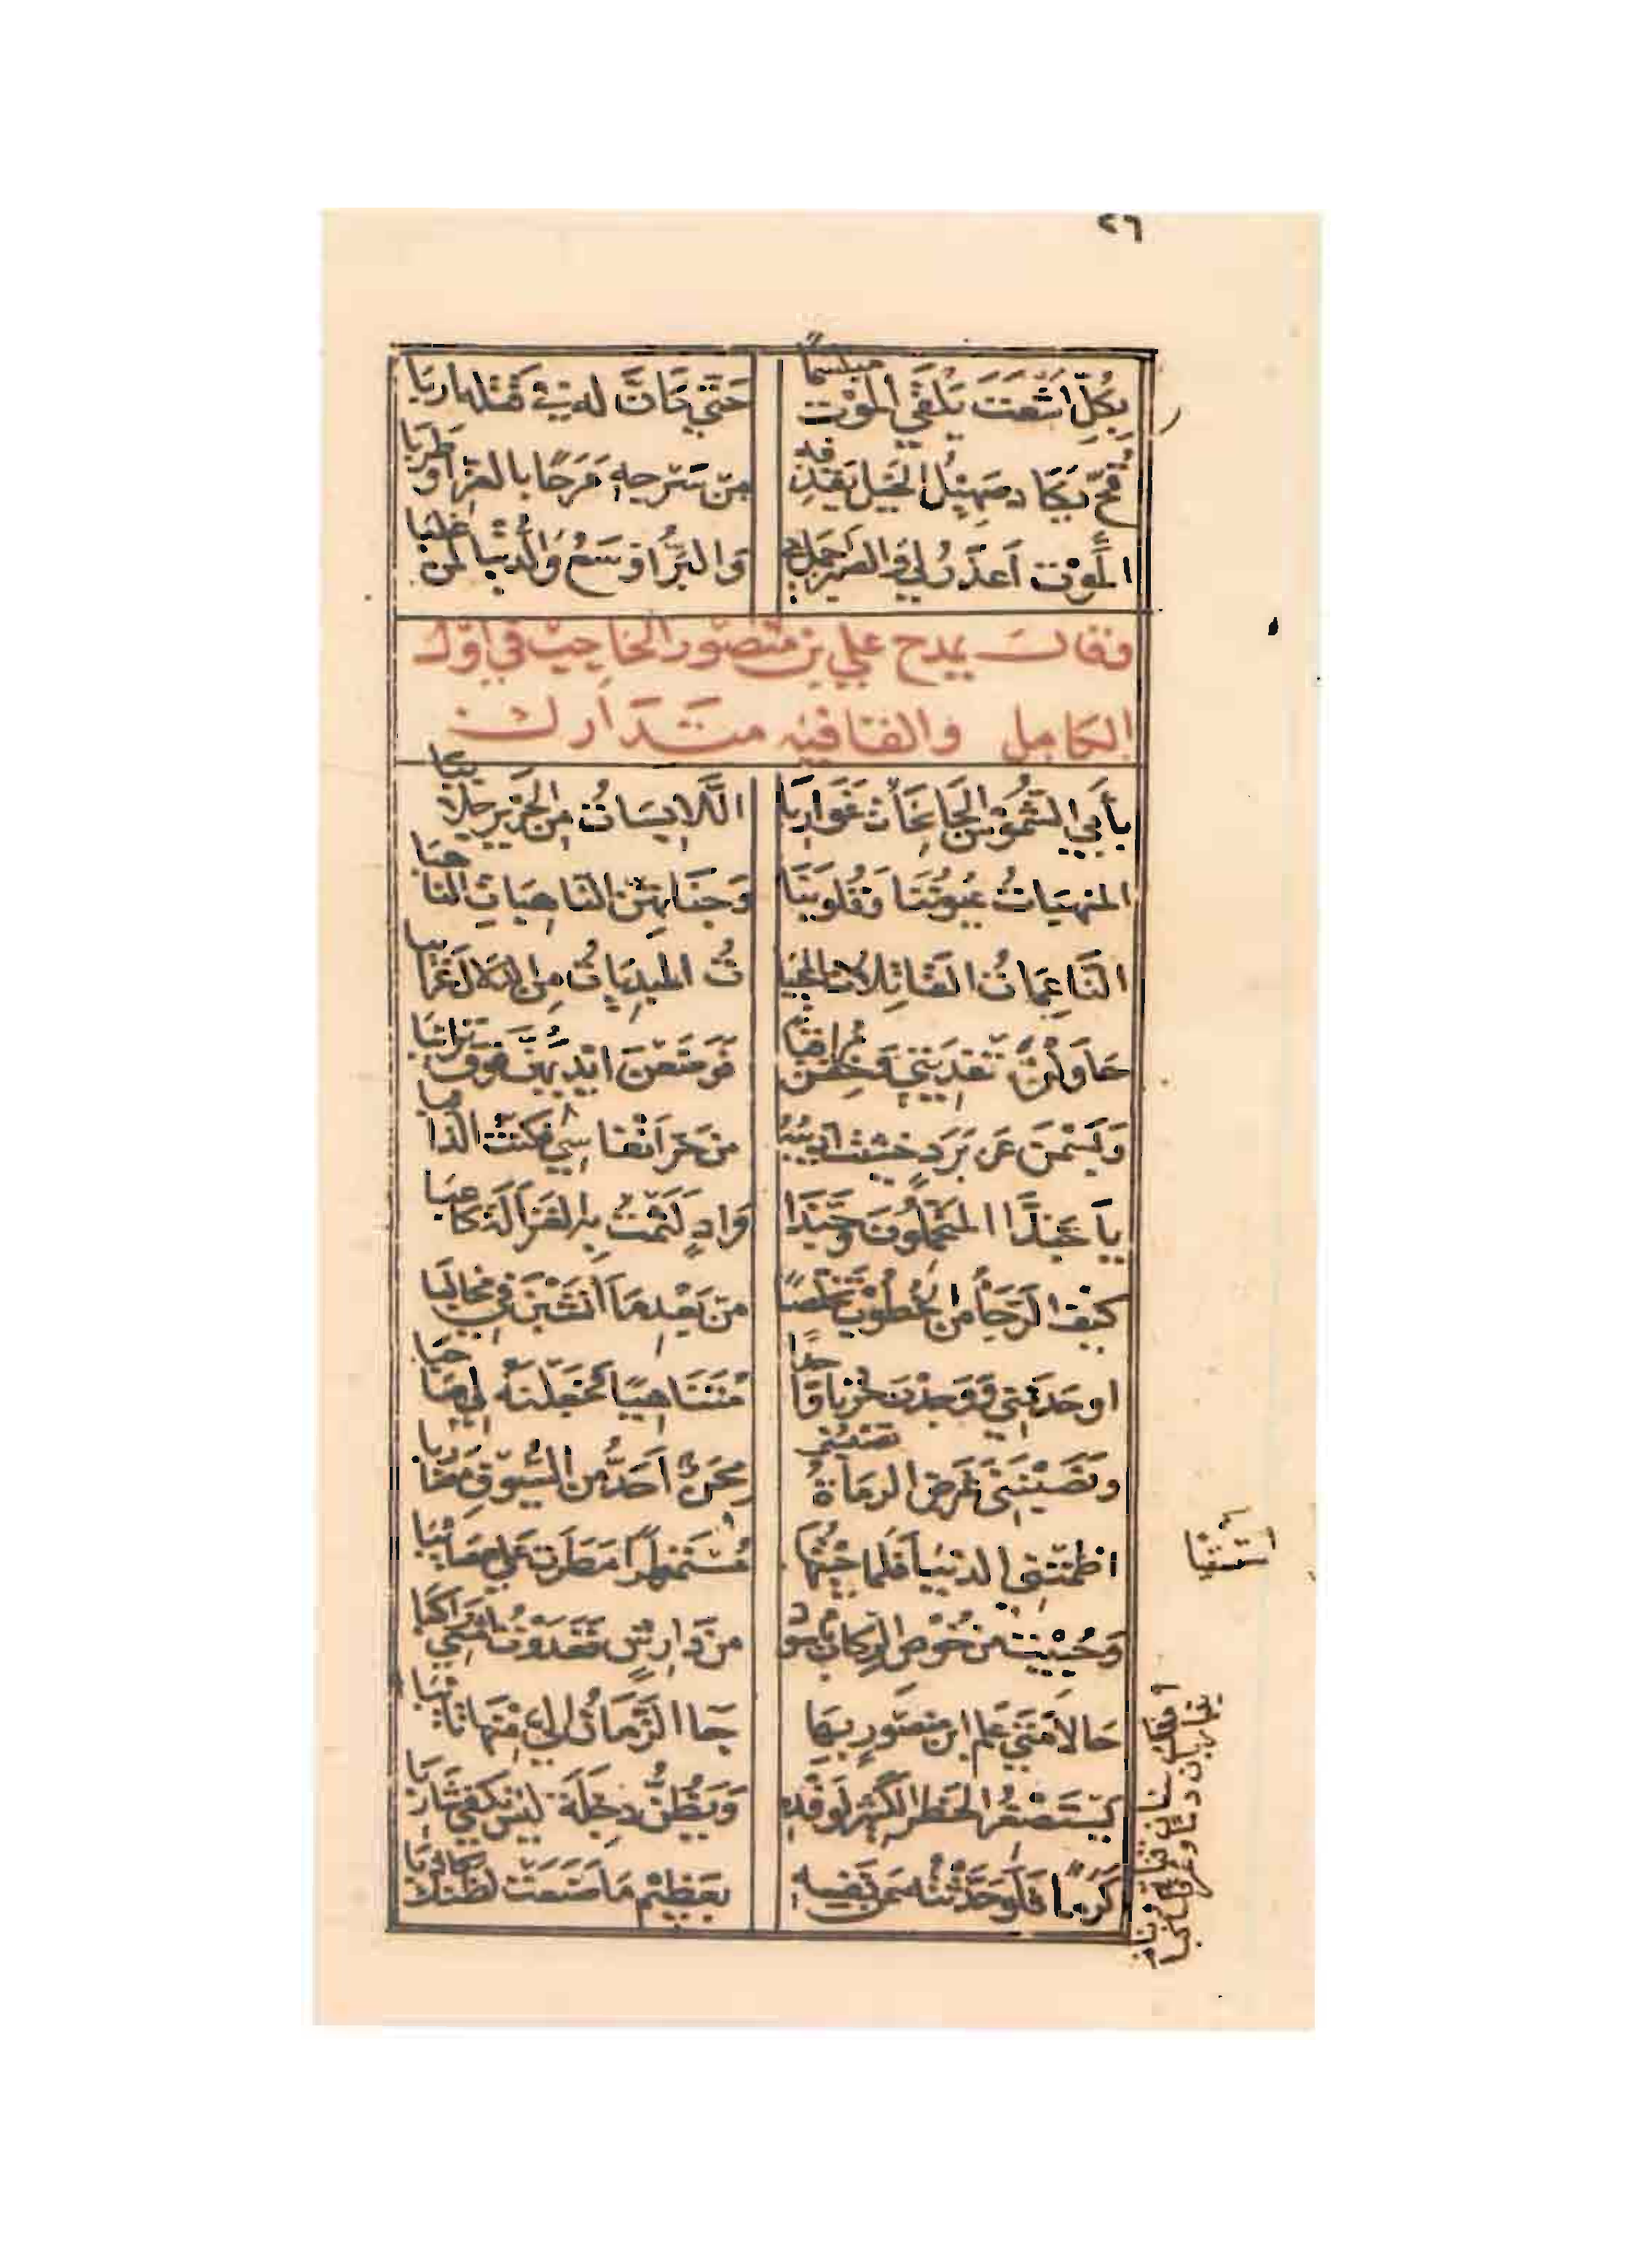 ٢٦
بِكُلِّ اشْعَثَ يَلْقَي المَوْت مبتسماً حَتّي كَانَّ له في قَتْله اربَا
قُحّ يَكَاد صَهِيْلُ الخَيْل يَقْذِفه مِنْ سَرْجِهِ مَرَحًا بالعزاو طَرَبا
المَوْت اَعذَرُ لي وَالصَبْر اجمل بي وَالبَرُّ اوْسَعُ وَالدُّنْيا لمن غلبا
وقال يمدح علي بن منصور الحاجب في اوّل
الكامل والقافيه متدارك
بأَبي الشُّمُوْسُ الجَانِحَاتُ غَوَاربَا اللَّابِسَاتُ مِن الحَرير جَلَاببَا
المنهبَاتُ عُيُونَنَا وَقُلوبَنَا وَجَنَاتهنّ النَّاهِبَاتِ النَّاهبَا
النَّاعِمَاتُ القَاتِلاتُ المُحْيِيَا تُ المُبدِيَاتُ مِن الدَلَال غَرَائبَا
حَاوَلْنَ تَفدِيَتِي وَخِفْنَ مُراقبَا فَوَضَعْنَ ايْدِيَهُنَّ فَوْقَ تَرَائبَا
وَبَسَمْنَ عَن بَرَدٍ خَشِيْتُ اُذِيْبُهُ من حَرِّ انْفَاسِي فَكنْتُ الذائبا
يَا حَبَّذَا المُتَحَمِّلُونَ وَحَبَّذَا وَادٍ لَثَمْتُ بِهِ الغَزَالَةَ كَاعبَا
كَيْفَ الرَّجَأُ مِنَ الخُطُوْبِ تَخَلُّصًا مِن بَعْدِ مَا اَنْشَبْنَ فِي مخالبَا
اوحَدْنَنِي وَوَجَدْنَ حُزنا وَاحدًا مُتَنَاهيًا فَجَعَلْنَهُ لِي صَاحبَا
ونَصَبْنَنِي غَرَضَ الرمَاةُ تصيبني مِحَنٌ اَحَدُّ مِن السُّيُوْفِ مَضَاربا
اظمَتْنِي الدنْيَا فَلَمَا جِئْتُهَا مُسْتَسْقِيًا مَطَرَت عَلَي مَصَائبَا
وَحُبِيْتُ مِن خُوْصِ الرِكَابِ بأسْود مِن دَارِشٍ فَغَدَوْتُ امْشِي رَاكبَا
حَالا مَتَي عَلم ابن مَنصُورٍ بهَا جَا الزَّمَانُ اليّ مِنْهَا تَائبَا
يَسْتَصْغُر الخَطَر الكَثِير لوَفْدِهِ وَيَظُنُّ دِجْلَةَ لَيْسَ تَكْفِي شَاربَا
كَرَمًا فَلَو حَدَّثْتُه عَن نَفْسِهِ بعَظِيْم مَا صَنَعَت لظَنَّكَ كَاذبَا